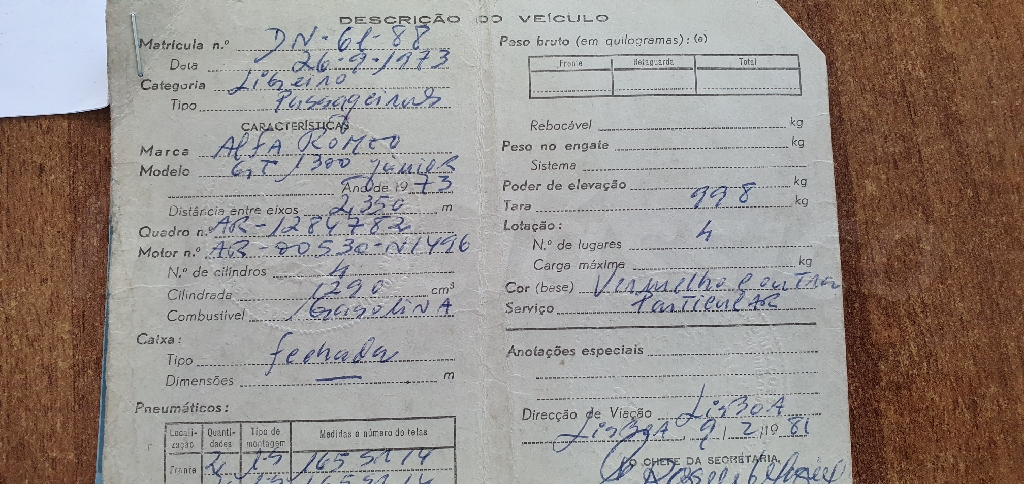 DESCRIÇÃO DO VEÍCULO
Matrícula n.º DN-61-88
Data 26-9-1973
Categoria Ligeiro
Tipo Passageiros
CARACTERÍSTICAS
Marca ALFA ROMEO
Modelo GT 1300 JUNIOR
Ano de 1973
Distância entre eixos 2,350 m
Quadro n.º AR-1284782
Motor n.º AR-00530-N1496
N.º de cilindros 4
Cilindrada 1290 cm³
Combustível GasolinA
Caixa:
Tipo fechada
Dimensões — m
Pneumáticos:
Locali-zação Quanti-dades Tipo de montagem Medidas e número de telas
Frente 2 15 165 SR 14
165 SR 14
Peso bruto (em quilogramas): (a)
Frente Retaguarda Total
Rebocável kg
Peso no engate kg
Sistema
Poder de elevação kg
Tara 998 kg
Lotação:
N.º de lugares 4
Carga máxima kg
Cor (base) Vermelho e outra
Serviço PARTICULAR
Anotações especiais
Direcção de Viação LISBOA
LISBOA, 9/2/1981
O CHEFE DA SECRETARIA,